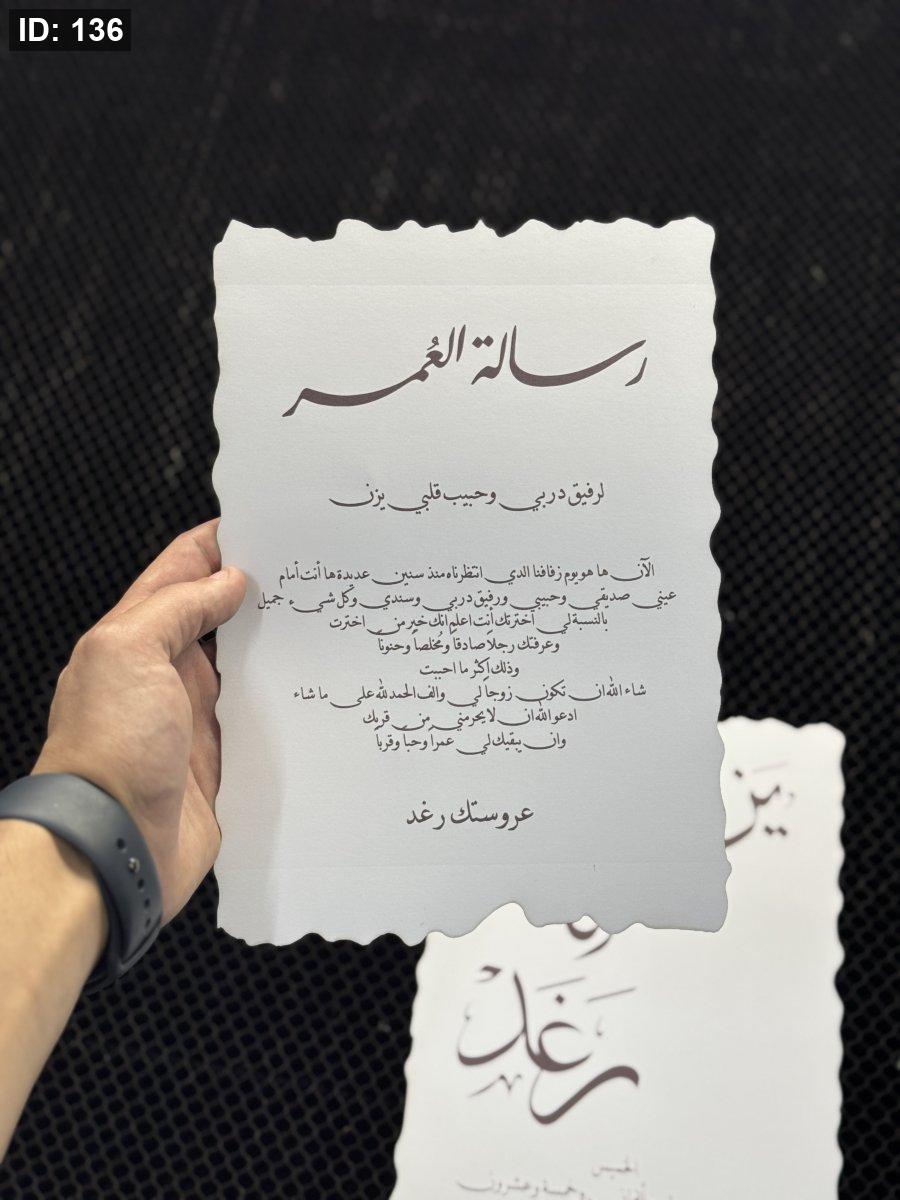 ID: 136
رسالة العُمر
لرفيق دربي وحبيب قلبي يزن
الآن ها هو يوم زفافنا الذي انتظرناه منذ سنين عديدة ها أنت أمام
عيني صديقي وحبيبي ورفيق دربي وسندي وكل شيء جميل
بالنسبة لي اخترتك أنت اعلم انك خير من اخترت
وعرفتك رجلاً صادقاً ومُخلصاً وحنوناً
وذلك اكثر ما احببت
شاء الله ان تكون زوجاً لي والف الحمد لله على ما شاء
ادعو الله ان لا يحرمني من قربك
وان يبقيك لي عمراً وحباً وقرباً
عروستك رغد
رغد
الخميس
وخمسة وعشرون